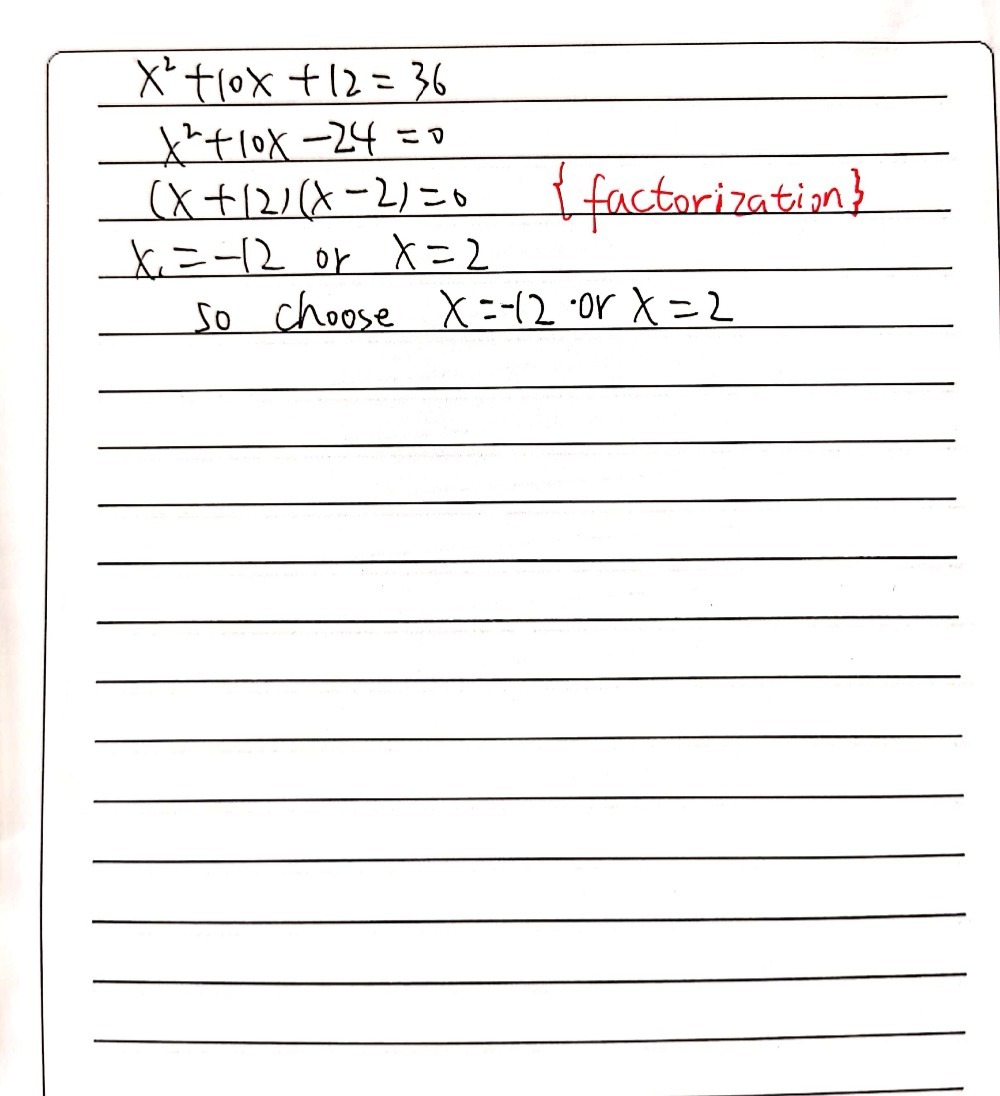 x² + 10x + 12 = 36
x² + 10x - 24 = 0
(x + 12)(x - 2) = 0 {factorization}
x₁ = -12 or x = 2
so choose x = -12 or x = 2